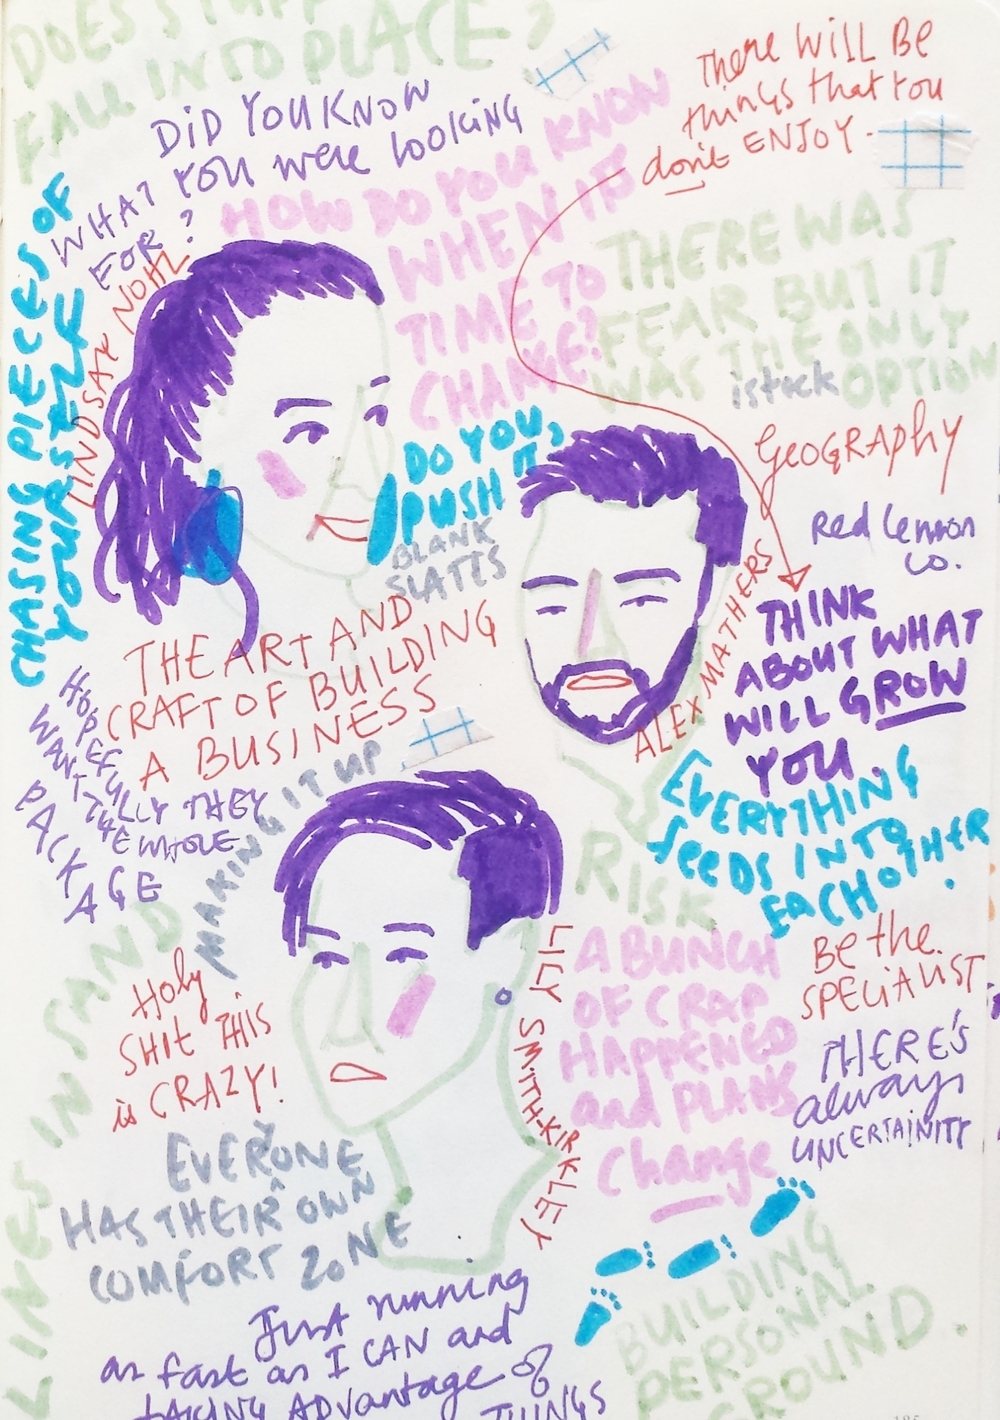 DOES STUFF
FALL INTO PLACE?
DID YOU KNOW
WHAT YOU were looking
FOR?
There WILL BE
things that you
don't ENJOY.
HOW DO YOU KNOW
WHEN IT'S
TIME TO
CHANGE?
THERE WAS
FEAR BUT IT
WAS THE ONLY
OPTION
istock
CHASING PIECES OF
YOURSELF
LINDSAY NOHL
DO YOU,
PUSH IT
BLANK
SLATTS
GEOGRAPHY
Red Lemon
co.
ALEX MATHERS
THINK
ABOUT WHAT
WILL GROW
YOU.
THE ART AND
CRAFT OF BUILDING
A BUSINESS
HOPEFULLY THEY
WANT THE WHOLE
PACKAGE
MAKING IT UP
EVERYTHING
SEEDS INTO
EACHOTHER.
RISK
LINES IN SAND
Holy
SHIT THIS
is CRAZY!
LILY SMITH-KIRKLEY
A BUNCH
OF CRAP
HAPPENED
and PLANS
Change
Be the
SPECIALIST
THERE'S
always
UNCERTAINITY
EVERYONE
HAS THEIR OWN
COMFORT ZONE
Just running
as fast as I CAN and
TAKING ADVantage of
THINGS
BUILDING
PERSONAL
GROUND